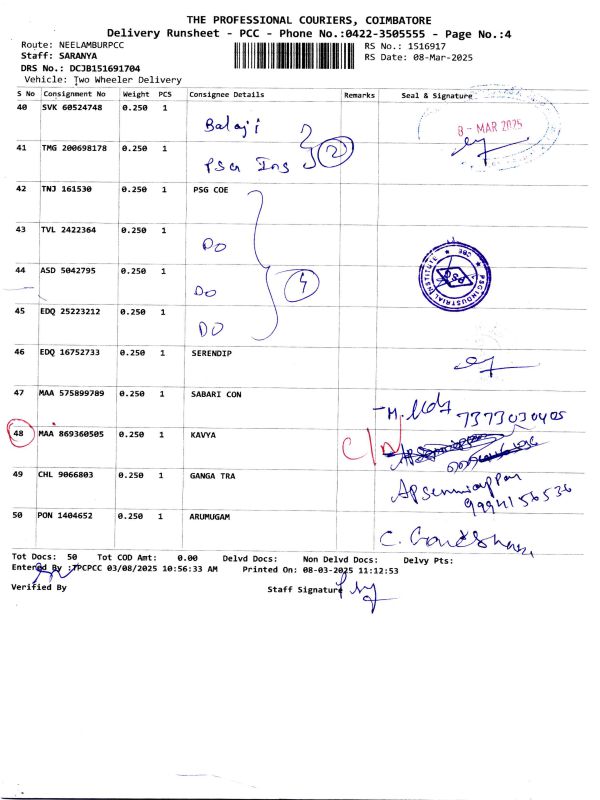 THE PROFESSIONAL COURIERS, COIMBATORE
Delivery Runsheet - PCC - Phone No.:0422-3505555 - Page No.:4
Route: NEELAMBURPCC RS No.: 1516917
Staff: SARANYA RS Date: 08-Mar-2025
DRS No.: DCJB151691704
Vehicle: Two Wheeler Delivery
S No Consignment No Weight PCS Consignee Details Remarks Seal & Signature
40 SVK 60524748 0.250 1 Balaji 8 - MAR 2025
41 TMG 200698178 0.250 1 PSG Ins 2
42 TNJ 161530 0.250 1 PSG COE
43 TVL 2422364 0.250 1 DO
44 ASD 5042795 0.250 1 DO 4 PSG INDUSTRIAL INSTITUTE ★ CBE ★ PSG
45 EDQ 25223212 0.250 1 DO
46 EDQ 16752733 0.250 1 SERENDIP
47 MAA 575899789 0.250 1 SABARI CON 7373030405
48 MAA 869360505 0.250 1 KAVYA
49 CHL 9066803 0.250 1 GANGA TRA 9994156536
50 PON 1404652 0.250 1 ARUMUGAM
Tot Docs: 50 Tot COD Amt: 0.00 Delvd Docs: Non Delvd Docs: Delvy Pts:
Entered By :JPCPCC 03/08/2025 10:56:33 AM Printed On: 08-03-2025 11:12:53
Verified By Staff Signature